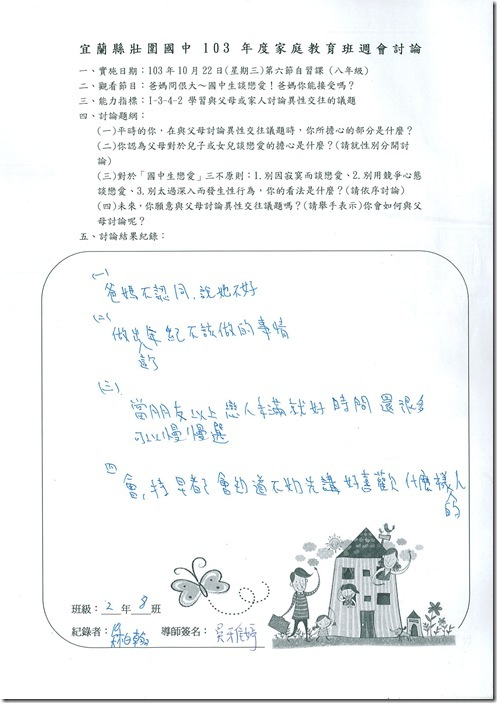 宜蘭縣壯圍國中 103 年度家庭教育班週會討論
一、實施日期：103 年 10 月 22 日(星期三)第六節自習課 (八年級)
二、觀看節目：爸媽冏很大～國中生談戀愛！爸媽你能接受嗎？
三、能力指標：1-3-4-2 學習與父母或家人討論異性交往的議題
四、討論題綱：
(一)平時的你，在與父母討論異性交往議題時，你所擔心的部分是什麼？
(二)你認為父母對於兒子或女兒談戀愛的擔心是什麼？(請就性別分開討
論)
(三)對於「國中生戀愛」三不原則：1.別因寂寞而談戀愛、2.別用競爭心態
談戀愛、3.別太過深入而發生性行為，你的看法是什麼？(請依序討論)
(四)未來，你願意與父母討論異性交往議題嗎？(請舉手表示)你會如何與父
母討論呢？
五、討論結果紀錄：
(一)
爸媽不認同，說她不好
(二)
做出年紀不該做的事情
(三)
當朋友以上戀人未滿就好 時間 還很多
可以慢慢選
四
會，早會知道不如先講 好喜歡 什麼樣人
的
班級：2 年 8 班
紀錄者： 導師簽名：吳雅婷